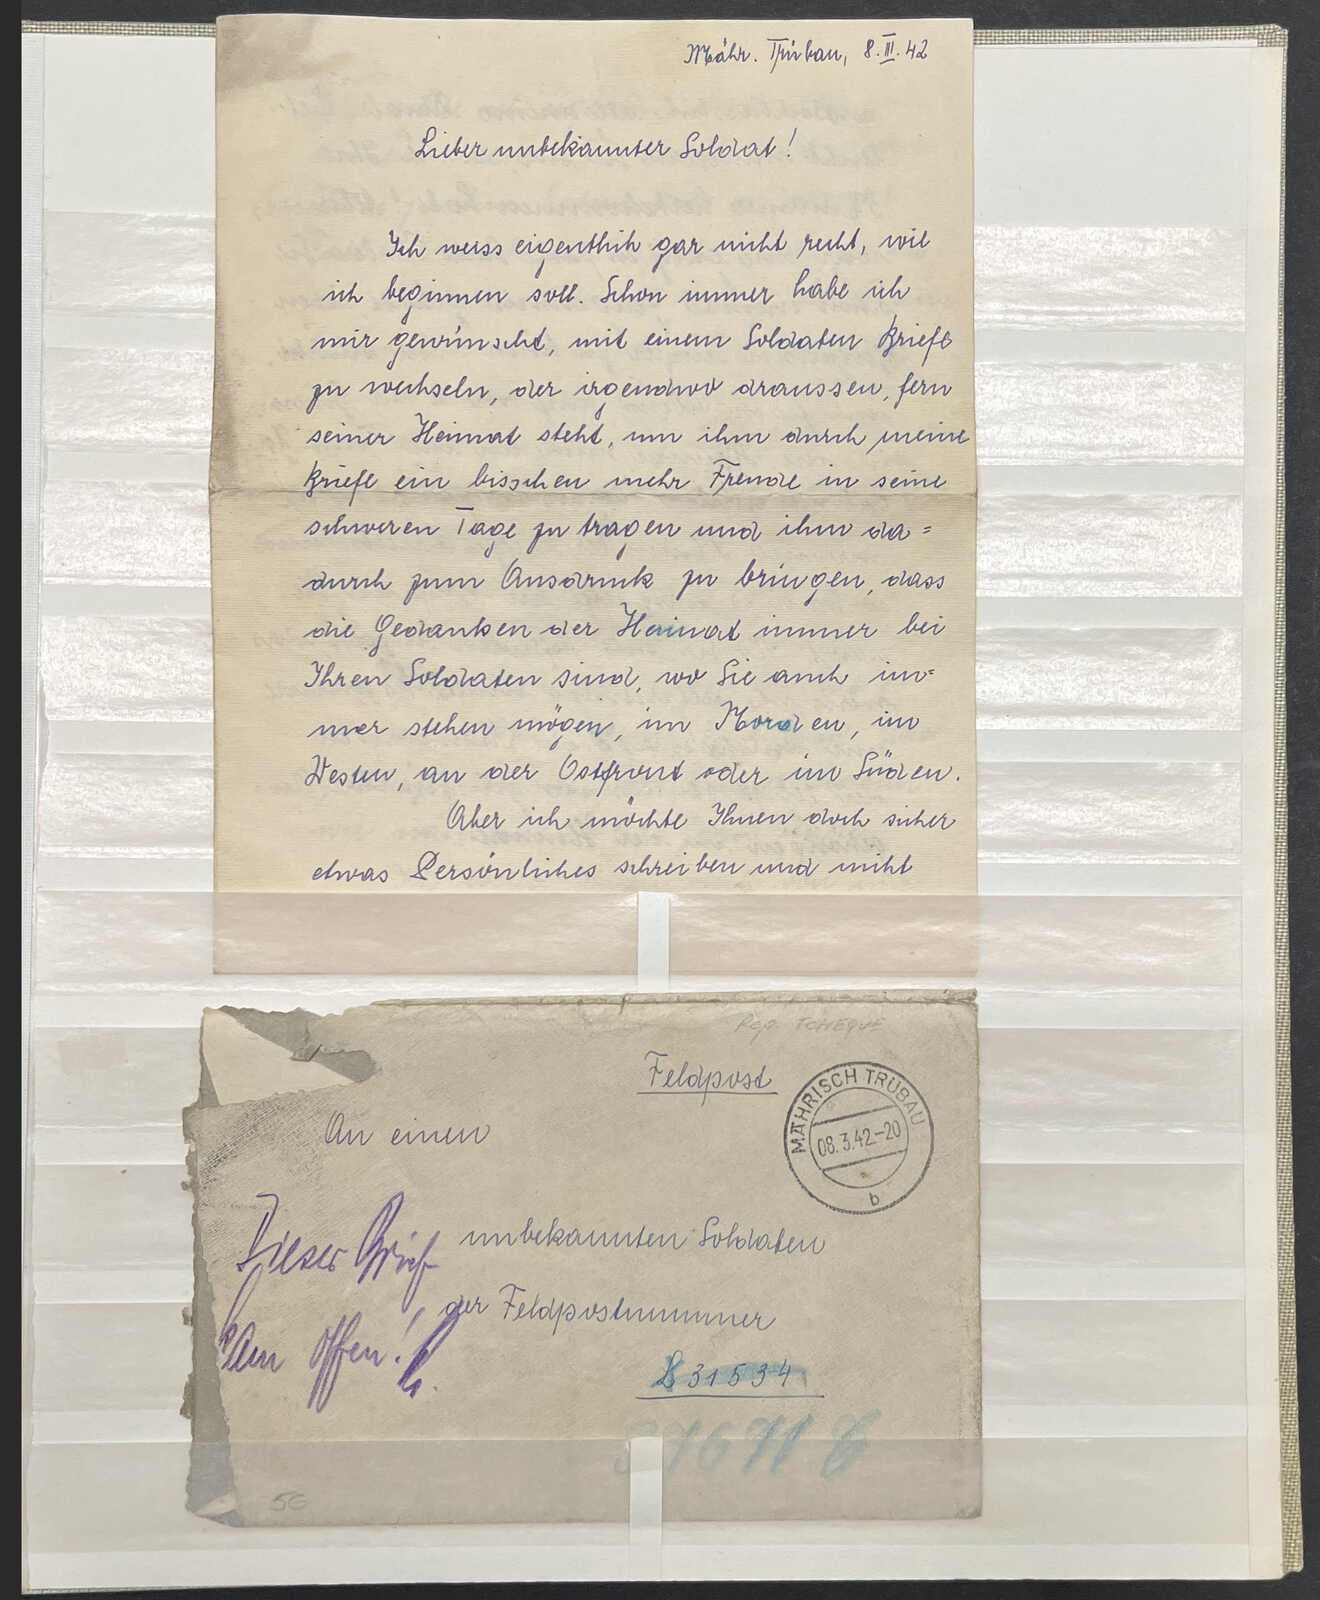 Mähr. Trübau, 8. III. 42
Lieber unbekannter Soldat!
Ich weiss eigentlich gar nicht recht, wie
ich beginnen soll. Schon immer habe ich
mir gewünscht, mit einem Soldaten Briefe
zu wechseln, der irgendwo draussen, fern
seiner Heimat steht, um ihm durch meine
Briefe ein bisschen mehr Freude in seine
schweren Tage zu tragen und ihm da=
durch zum Ausdruck zu bringen, dass
die Gedanken der Heimat immer bei
Ihren Soldaten sind, wo Sie auch im=
mer stehen mögen, im Norden, im
Westen, an der Ostfront oder im Süden.
Aber ich möchte Ihnen doch sicher
etwas Persönliches schreiben und nicht
TCHEQUE
Feldpost
MÄHRISCH TRÜBAU
08.3.42-20
b
An einen
unbekannten Soldaten
der Feldpostnummer
L 31534
Dieser Brief
kam offen!